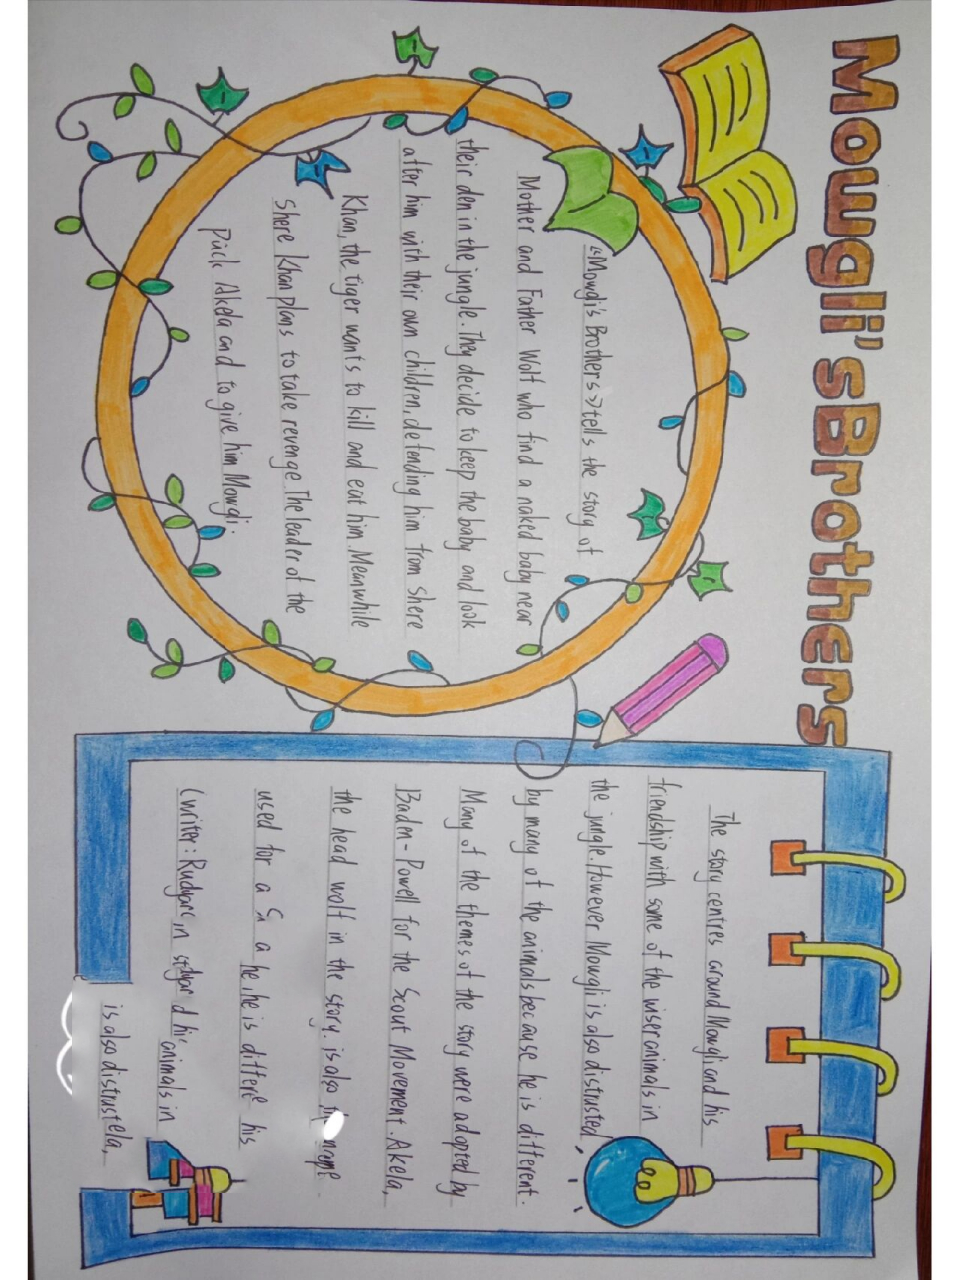 Mowgli's Brothers
《Mowgli's Brothers》tells the story of
Mother and Father Wolf who find a naked baby near
their den in the jungle. They decide to keep the baby and look
after him with their own children, defending him from Shere
Khan, the tiger wants to kill and eat him. Meanwhile
Shere Khan plans to take revenge The leader of the
Pack Akela and to give him Mowgi.
The story centres around Mowgli and his
friendship with some of the wiser animals in
the jungle. However Mowgli is also distrusted
by many of the animals because he is different.
Many of the themes of the story were adopted by
Baden-Powell for the Scout Movement. Akela,
the head wolf in the story. is also name
used for a a he he is differe his
(writer: his animals in
is also distrustela,